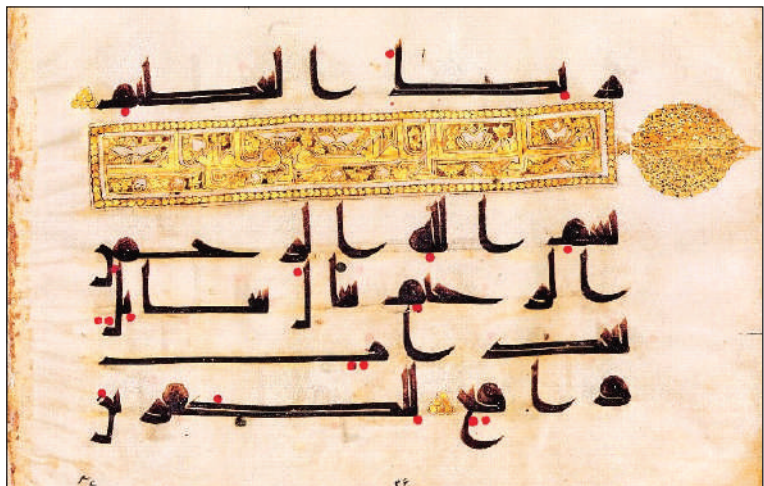 م ربك العظيم
بسم الله الرحمن
الرحيم سأل سائل
بعذاب
واقع للكفرين